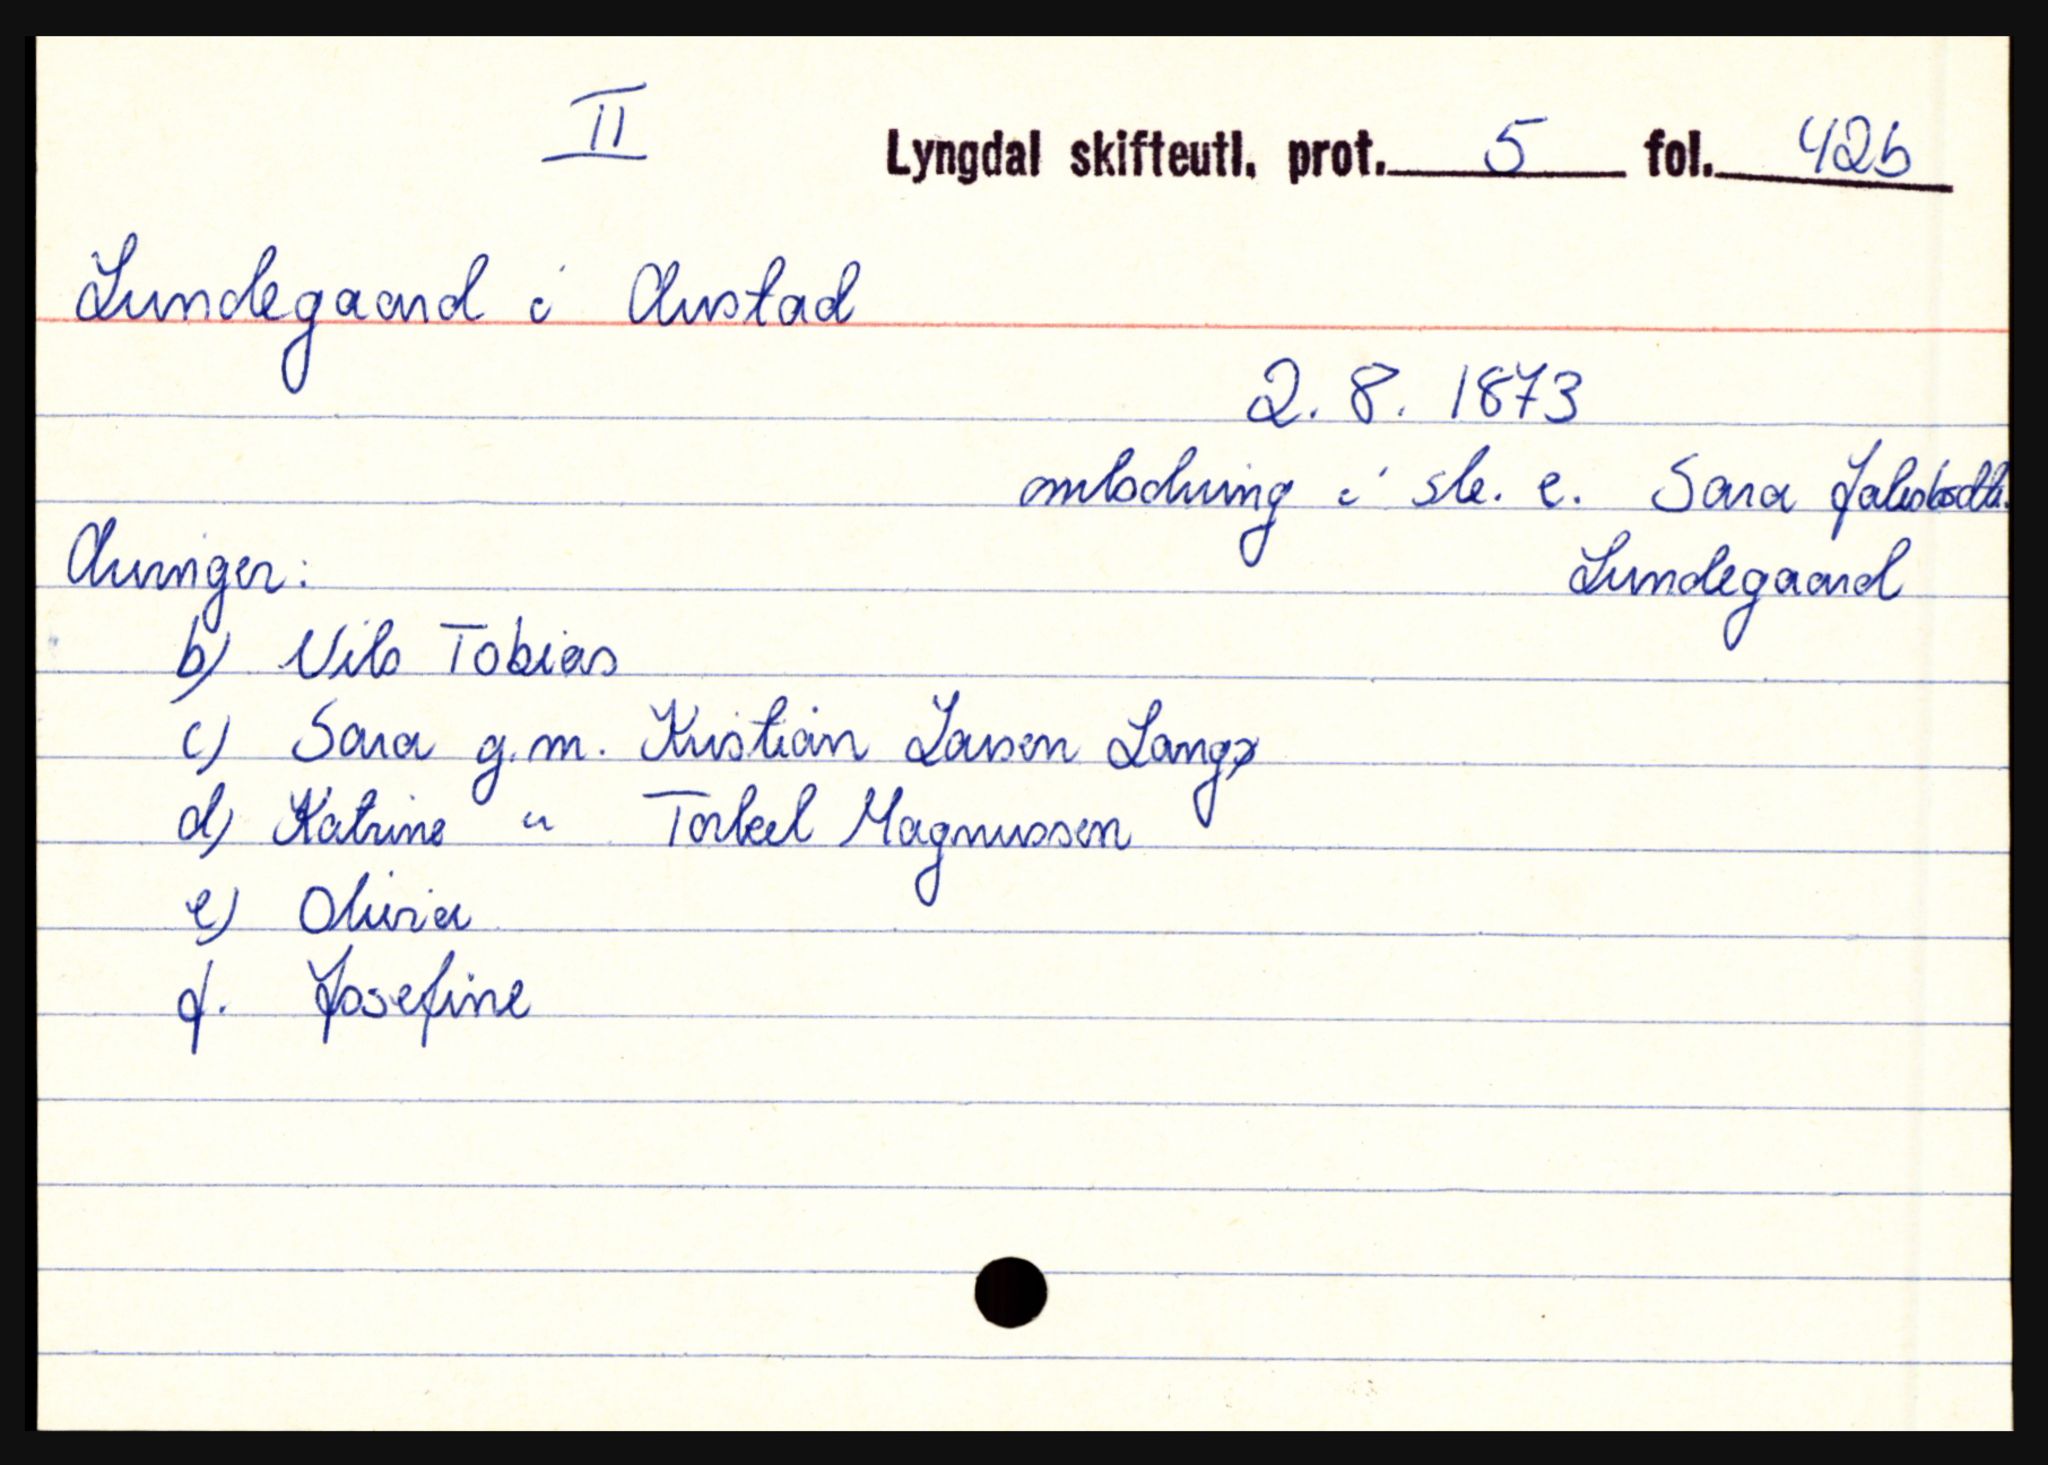 II
Lyngdal skifteutl. prot. 5 fol. 42b
Lundegaard i Austad
2. 8. 1873
omlodning i sk. e. Sara Jakobsdtr.
Lundegaard
Arvinger:
b) Nils Tobias
c) Sara g.m. Kristian Larsen Langø
d) Katrine " Torkel Magnussen
e) Olivia
f. Josefine